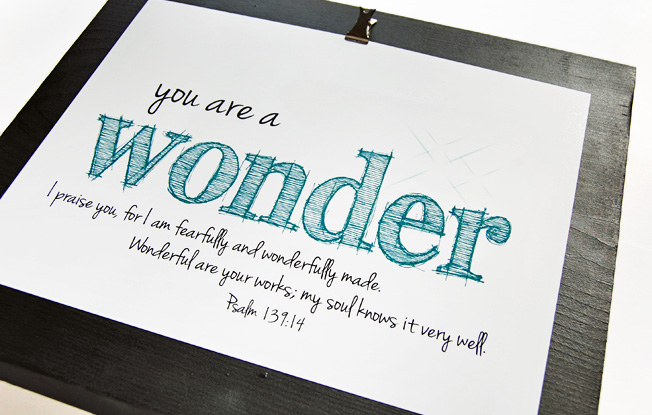 you are a
wonder
I praise you, for I am fearfully and wonderfully made.
Wonderful are your works; my soul knows it very well.
Psalm 139:14